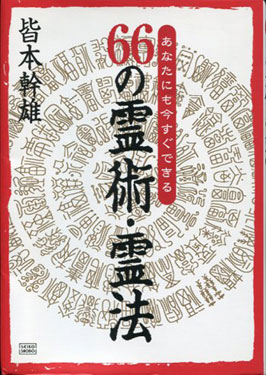 あなたにも今すぐできる
66の霊術・霊法
皆本幹雄
SEIKO
SHOBO